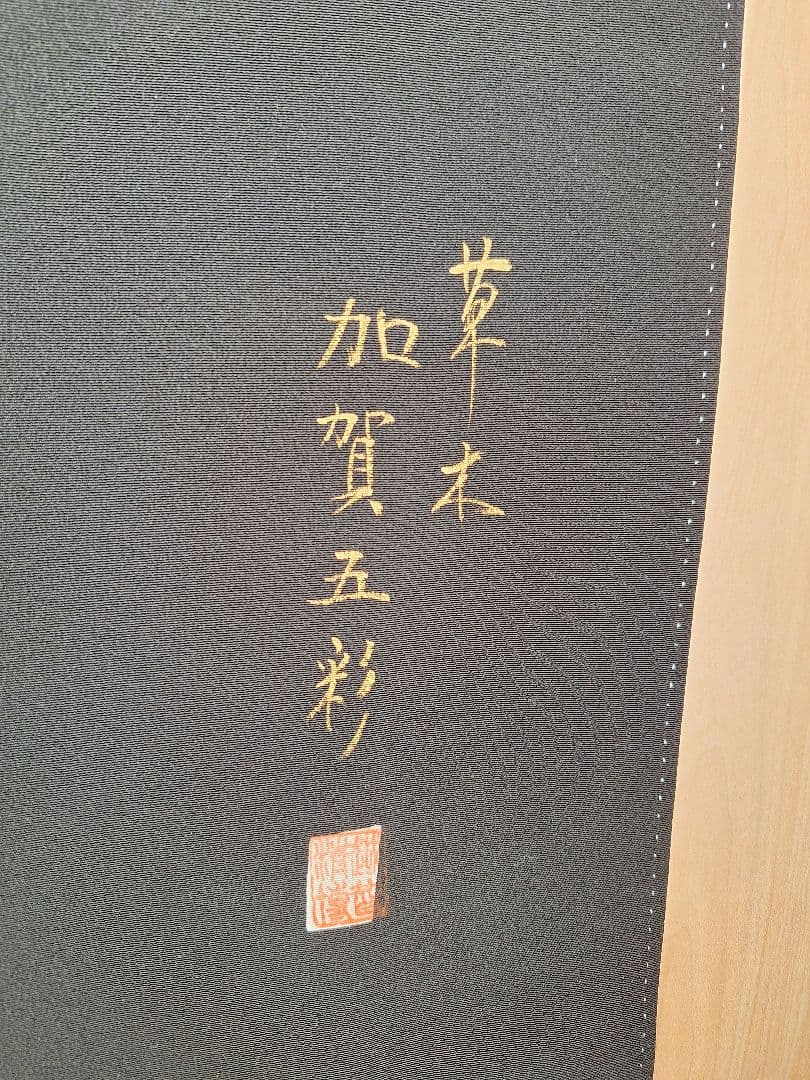 草木
加賀五彩